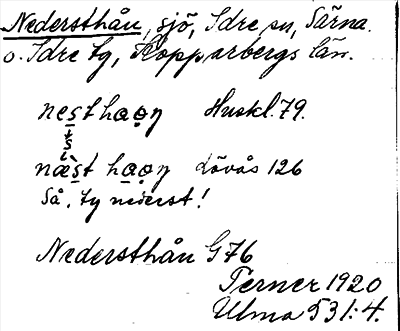 Nedersthån, sjö, Idre sn, Särna
o. Idre tg, Kopparbergs län.
nest haoŋ Huskl. 79.
næ̀st haoŋ Lövås 126
Så, ty nederst!
Nedersthån G76
Terner 1920
Ulma 531:4.